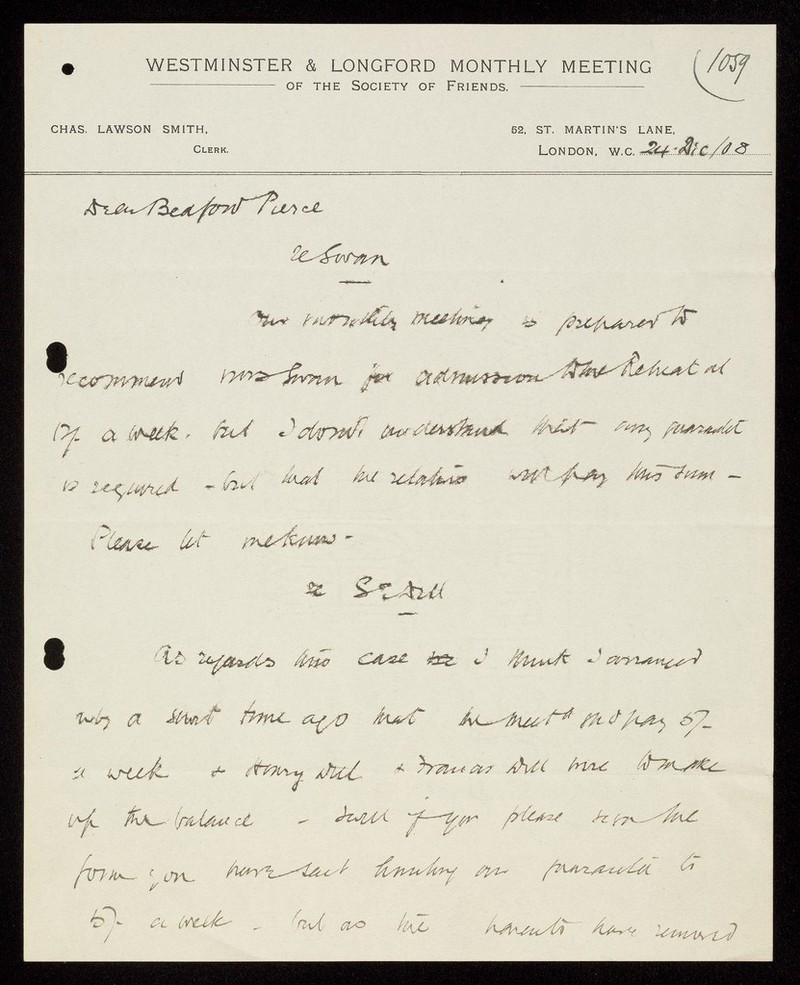 WESTMINSTER & LONGFORD MONTHLY MEETING
OF THE SOCIETY OF FRIENDS.
(1059
CHAS. LAWSON SMITH,
CLERK.
52, ST. MARTIN'S LANE,
LONDON, W.C. 24 Dec/08
Dear Bedford Pierce
re Swan
Our monthly meeting is prepared to
recommend Swan for admission to the Retreat at
a week. but I don't understand that any guarantee
is required - but that the relatives will pay this sum -
Please let me know -
re Dell
As regards this case I think I arranged
a short time ago that the meetg should pay 5/-
a week & Henry Dell & Francis Dell were to make
up the balance - I will if you please sign the
form you have sent limiting our guarantee to
5/- a week - but as the parents have removed